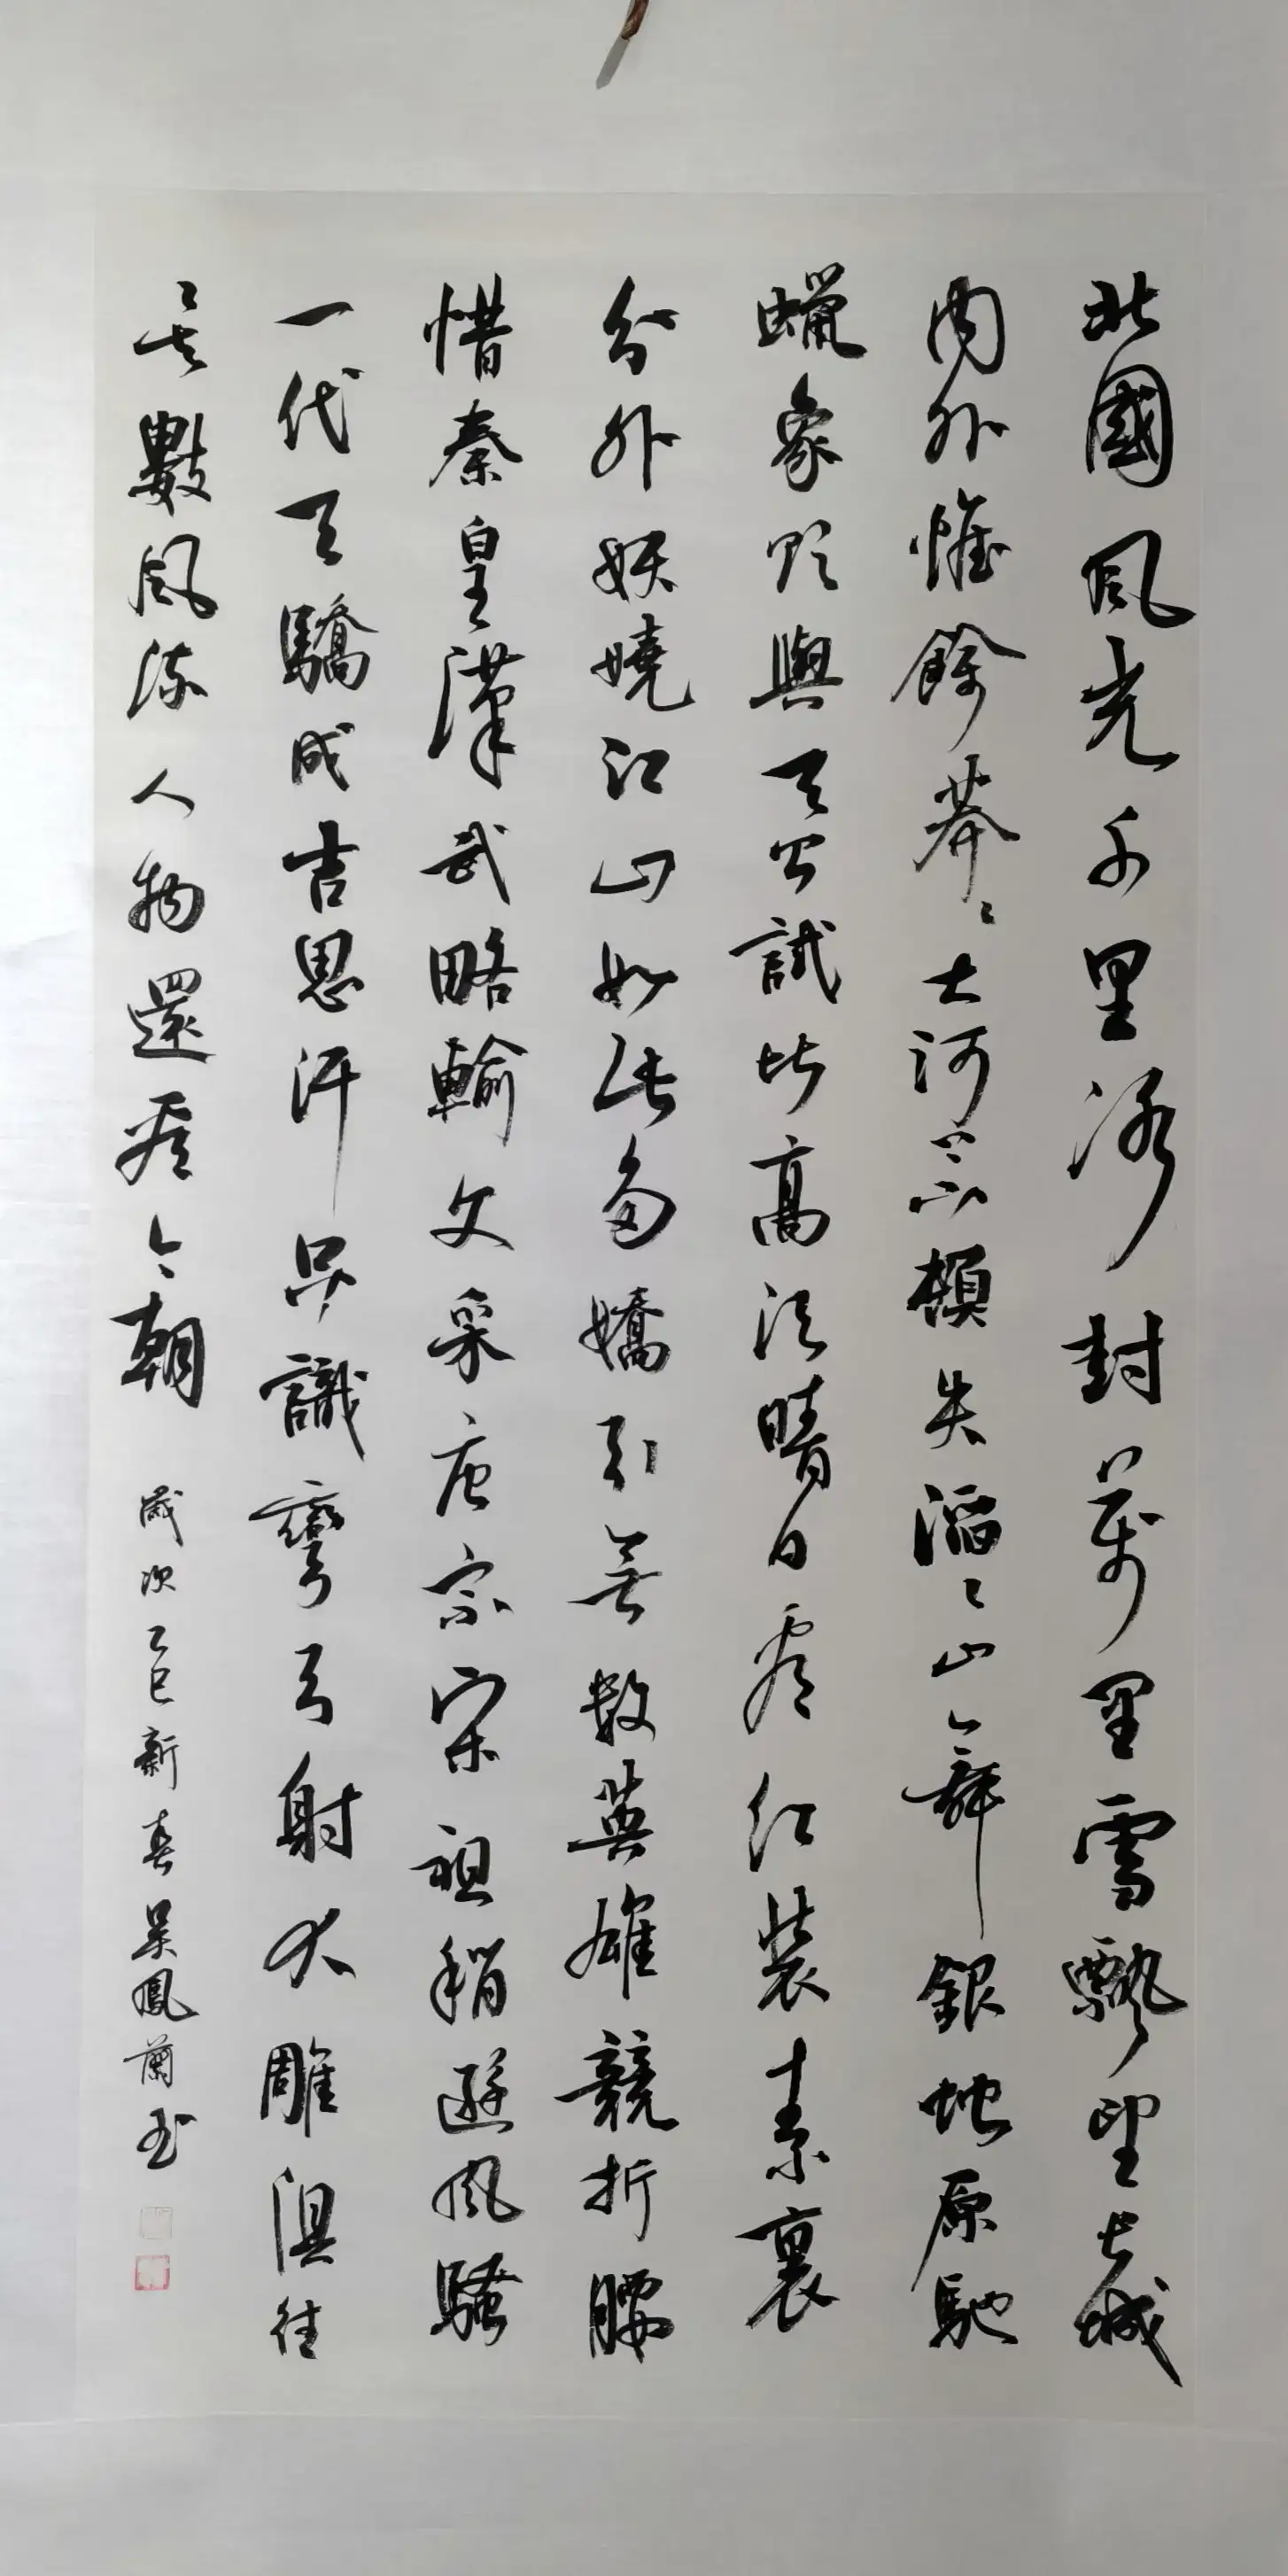 北國風光千里冰封萬里雪飄望長城
內外惟餘莽〻大河上下頓失滔〻山舞銀蛇原馳
蠟象欲與天公試比高須晴日看紅裝素裹
分外妖嬈江山如此多嬌引無数英雄競折腰
惜秦皇漢武略輸文采唐宗宋祖稍遜風騷
一代天驕成吉思汗只識彎弓射大雕俱往
矣數風流人物還看今朝 歲次乙巳新春吳鳳蘭書